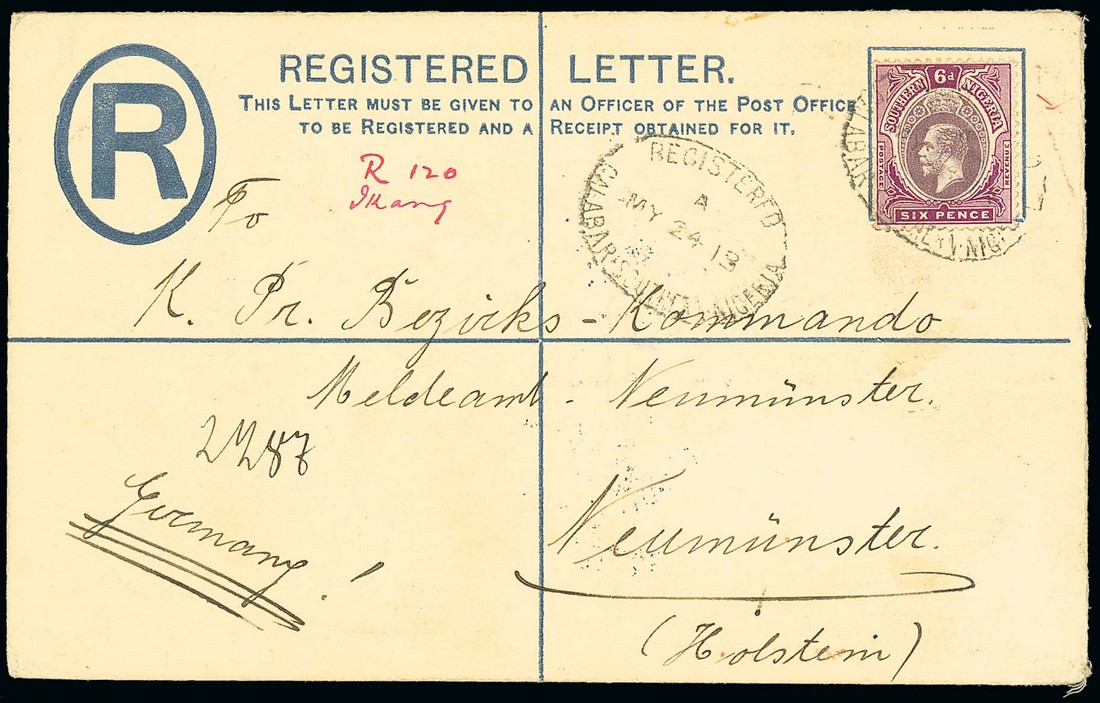 R
REGISTERED LETTER.
THIS LETTER MUST BE GIVEN TO AN OFFICER OF THE POST OFFICE
TO BE REGISTERED AND A RECEIPT OBTAINED FOR IT.
SOUTHERN NIGERIA
6d
POSTAGE REVENUE
SIX PENCE
R 120
Ikang
REGISTERED
A
MY 24 13
CALABAR SOUTHERN NIGERIA
To
K. Pr. Bezirks-Kommando
Meldeamt - Neumünster.
Germany!
Neumünster.
(Holstein)